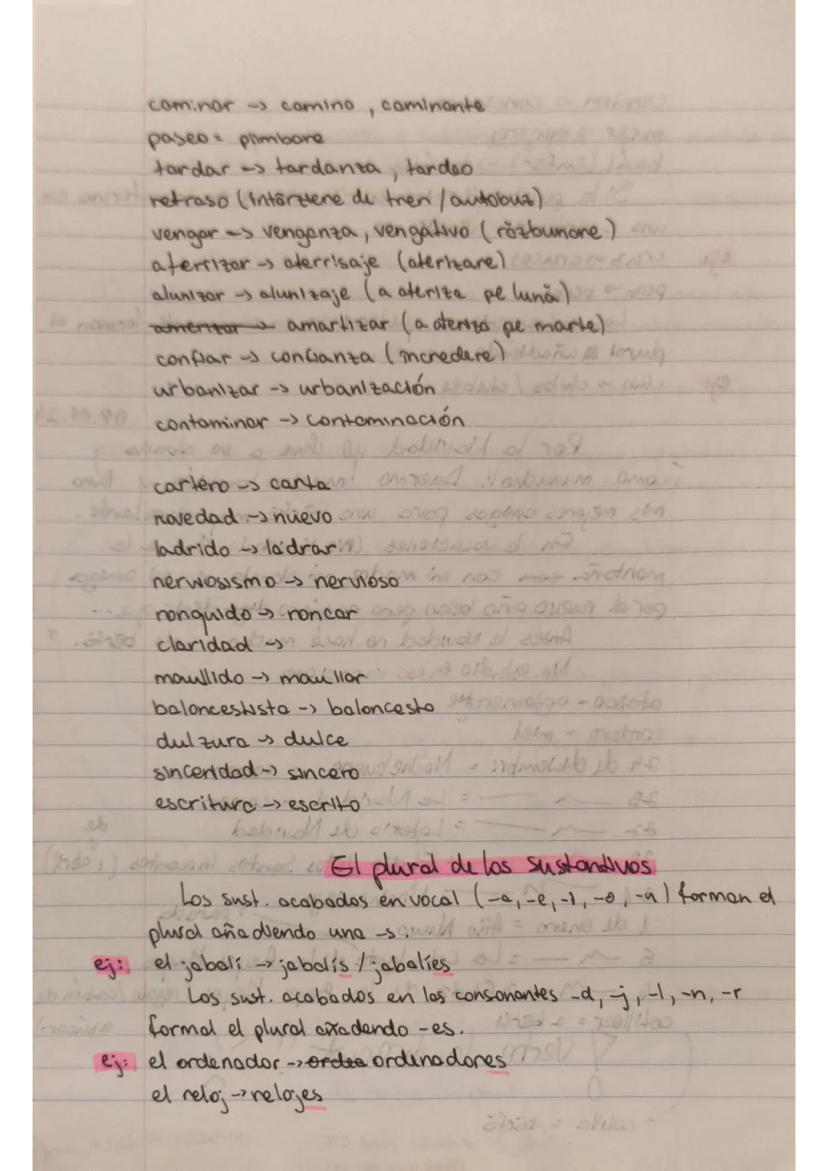 caminar -> camino, caminante
paseo = plimbare
tardar -> tardanza, tardeo
retraso (întârziere de tren / autobuz)
vengar -> venganza, vengativo (răzbunare)
aterrizar -> aterrisaje (aterizare)
alunizar -> alunizaje (a ateriza pe lună)
amartizar (a ateriza pe marte)
confiar -> confianza (incredere)
urbanizar -> urbanización
contaminar -> contaminación
cartero -> carta
novedad -> nuevo
ladrido -> ladrar
nerviosismo -> nervioso
ronquido -> roncar
claridad ->
maullido -> maúllar
baloncestista -> baloncesto
dulzura -> dulce
sinceridad -> sincero
escritura -> escrito
El plural de los sustantivos
Los sust. acabados en vocal (-a, -e, -i, -o, -u) forman el
plural añadiendo una -s.
ej: el jabalí -> jabalís / jabalíes
Los sust. acabados en las consonantes -d, -j, -l, -n, -r
formal el plural añadendo -es.
ej: el ordenador -> ordenadores
el reloj -> relojes